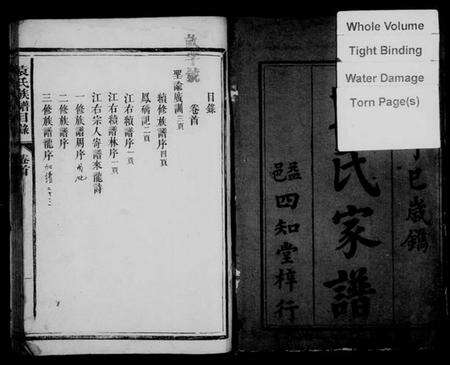 Whole Volume
Tight Binding
Water Damage
Torn Page(s)
丁巳歲鐫
袁氏家譜
四知堂梓行
目錄
卷首
聖諭廣訓
續修族譜序四頁
鳳病記二頁
江右續譜序一頁
江右續譜林序一頁
江右宗人寄譜來龍詩
一修族譜周序
二修族譜序
三修族譜龍序
袁氏族譜目錄 卷首